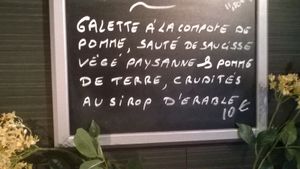 GALETTE À LA COMPOTE DE
POMME, SAUTÉ DE SAUCISSE
VÉGÉ PAYSANNE & POMME
DE TERRE, CRUDITÉS
AU SIROP D'ÉRABLE
10 €